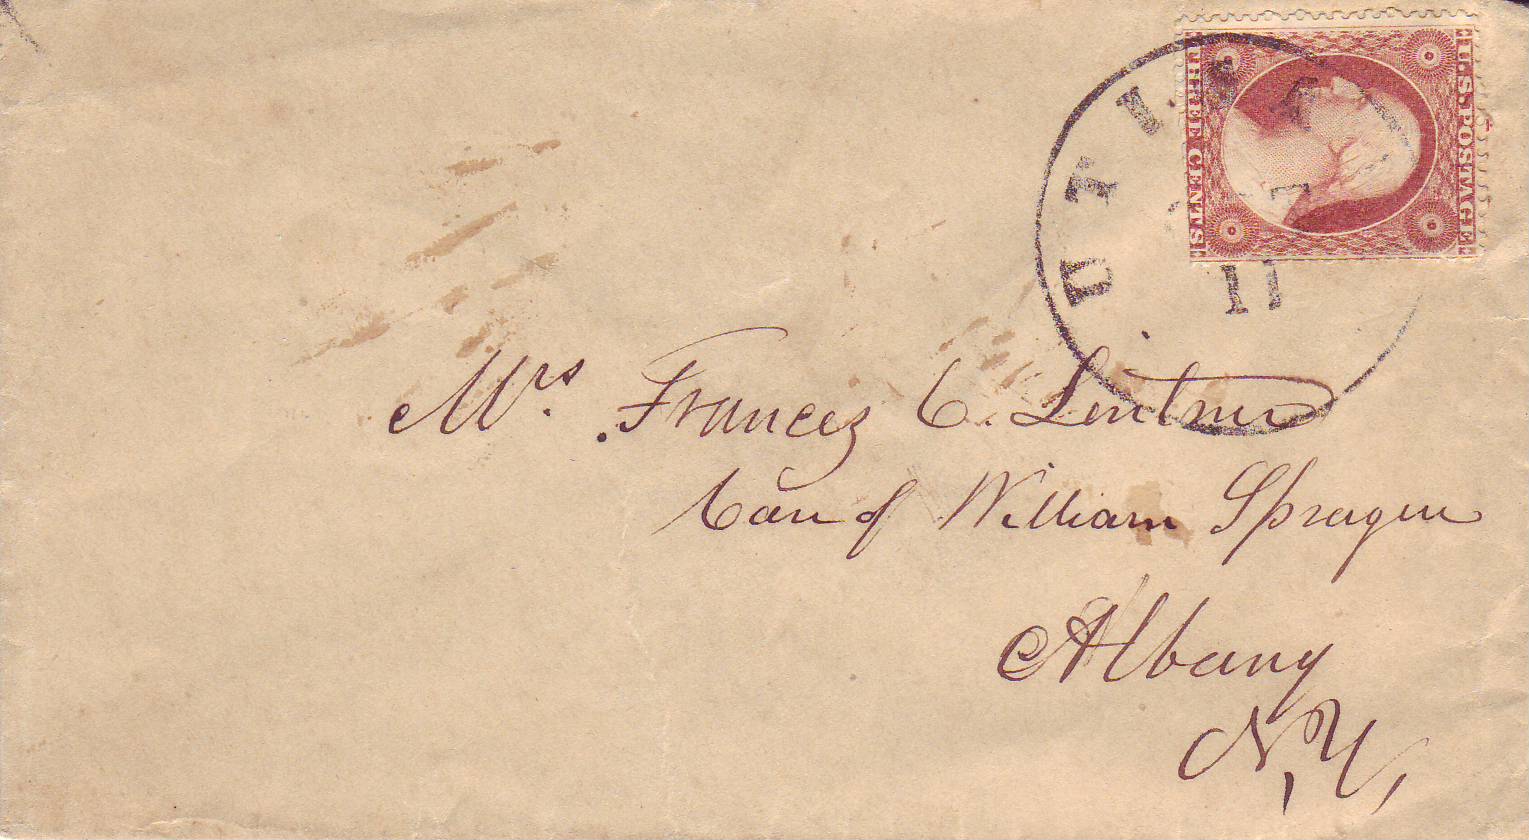 U.S. POSTAGE
THREE CENTS
UTICA
11
Mrs. Francez C. Lentner
Care of William Sprague
Albany
N.Y.